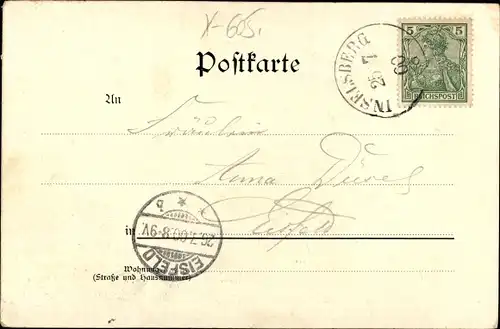 X-605.
Postkarte
5 5
REICHSPOST
INSELSBERG
26 7 00
An
Fräulein
Anna Dürer
in Eisfeld
EISFELD
26.7.00.8-9V.
* b
Wohnung
(Straße und Hausnummer)